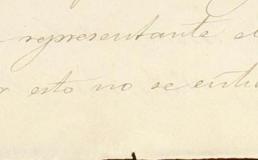 representante
esto no se